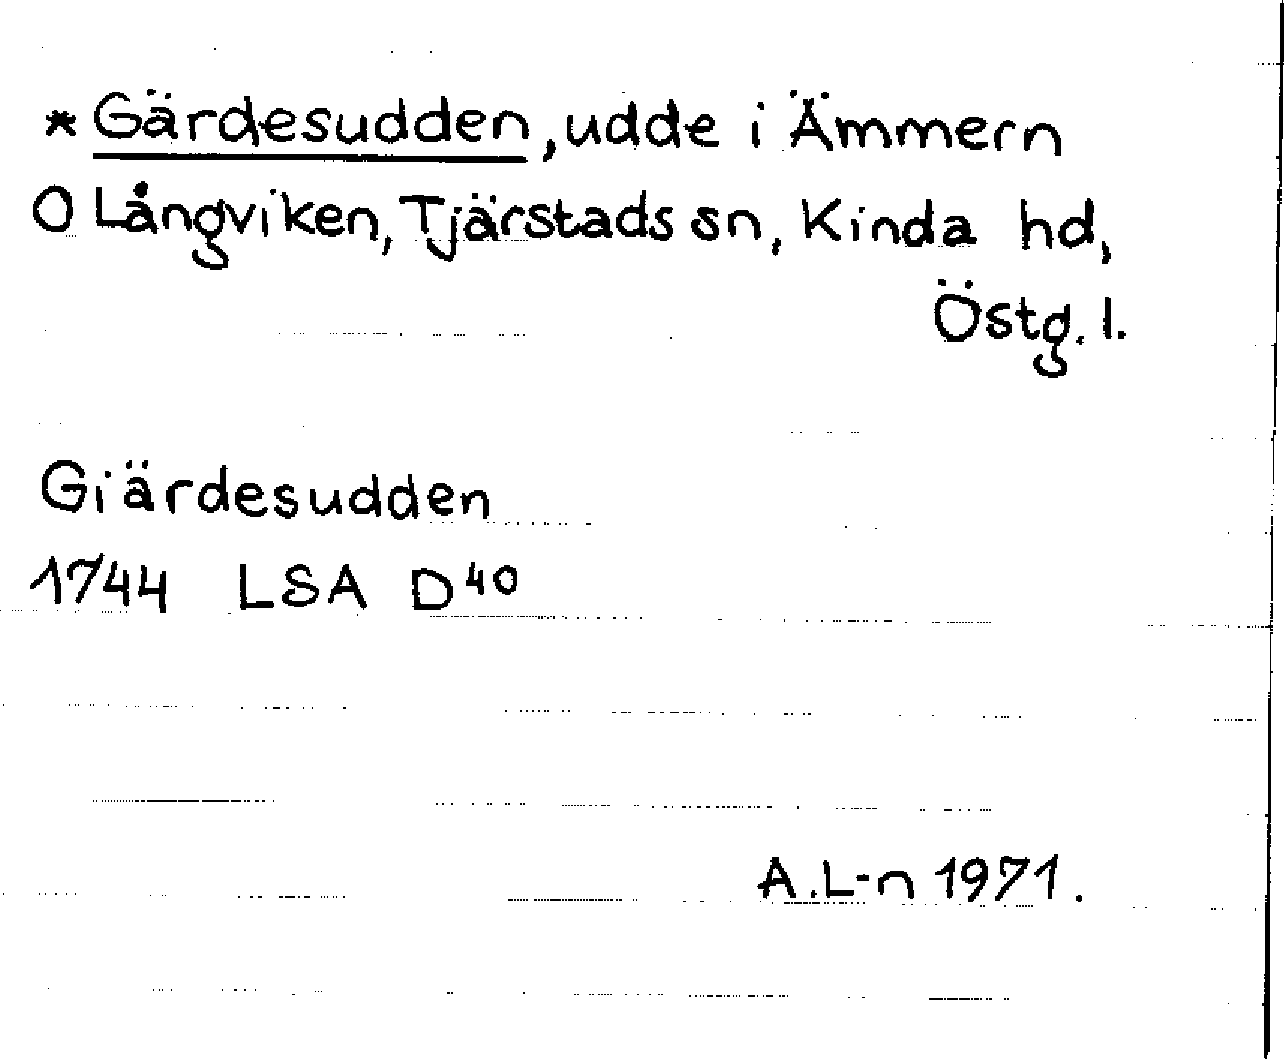 * Gärdesudden, udde i Ämmern
O Långviken, Tjärstads sn, Kinda hd,
Östg. l.
Giärdesudden
1744 LSA D40
A.L-n 1971.